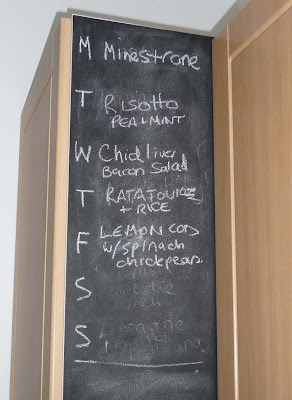 M Minestrone
T Risotto
PEA & MINT
W Chic liver
Bacon Salad
T RATATOUILLE
+ RICE
F LEMON COD
w/ spinach
chickpeas.
S
S